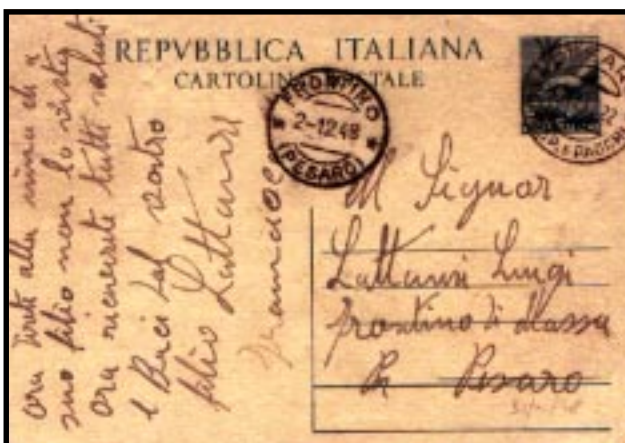 REPVBBLICA ITALIANA
CARTOLINA POSTALE
FRONTINO
2-12 48
(PESARO)
Al Signor
Lattanzi Luigi
frontino di Massa
Pr Pesaro
ora dirte alla ninna che il
suo filio non lo visto
ora ricevete tutti saluti
e Baci dal vostro
filio Lattanzi
Francesco